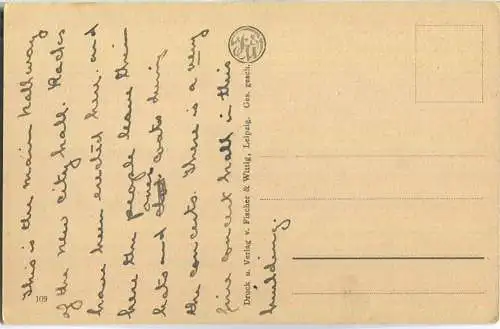 This is the main hallway
of the new city hall. Racks
have been erected here and
here the people leave their
hats and canes coats during
the concerts. There is a very
fine concert hall in this
building.
Druck u. Verlag v. Fischer & Wittig, Leipzig. Ges. gesch.
109